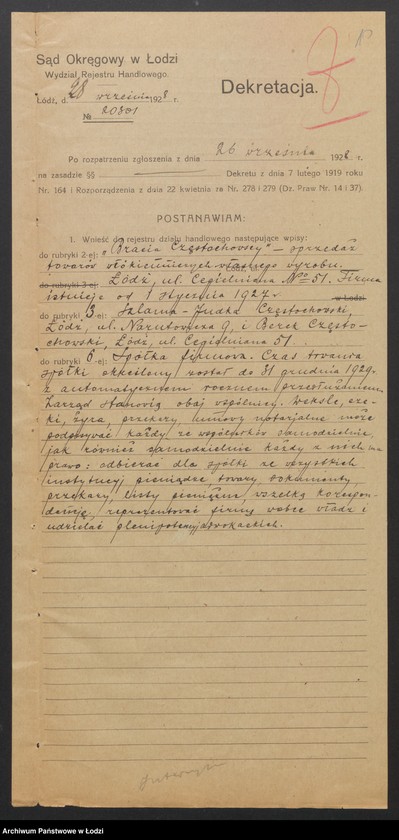 Sąd Okręgowy w Łodzi
Wydział Rejestru Handlowego.
Łódź, d. 28 września 1928 r.
№ 20801
Dekretacja.
Po rozpatrzeniu zgłoszenia z dnia 26 września 1928 r.
na zasadzie §§ Dekretu z dnia 7 lutego 1919 roku
Nr. 164 i Rozporządzenia z dnia 22 kwietnia za Nr. 278 i 279 (Dz. Praw Nr. 14 i 37).
POSTANAWIAM:
1. Wnieść do rejestru działu handlowego następujące wpisy:
do rubryki 2-ej: „Bracia Częstochowscy" – sprzedaż
towarów włókienniczych własnego wyrobu.
do rubryki 3-ej: Łódź, ul. Cegielniana № 51. Firma
istnieje od 1 stycznia 1927 r. w Łodzi
do rubryki 3-ej: Szlama-Judka Częstochowski,
Łódź, ul. Narutowicza 9, i Berek Często-
chowski, Łódź, ul. Cegielniana 51.
do rubryki 6-ej: Spółka firmowa. Czas trwania
spółki określony został do 31 grudnia 1929 r.
z automatycznem rocznem przedłużeniem.
Zarząd stanowią obaj wspólnicy. Weksle, cze-
ki, żyra, przekazy, umowy notarjalne może
podpisywać każdy ze wspólników samodzielnie,
jak również samodzielnie każdy z nich ma
prawo: odbierać dla spółki ze wszystkich
instytucyj pieniądze, towary, dokumenty,
przekazy, listy pieniężne, wszelką korespon-
dencję, reprezentować firmę wobec władz i
udzielać plenipotencyj adwokackich.
Archiwum Państwowe w Łodzi